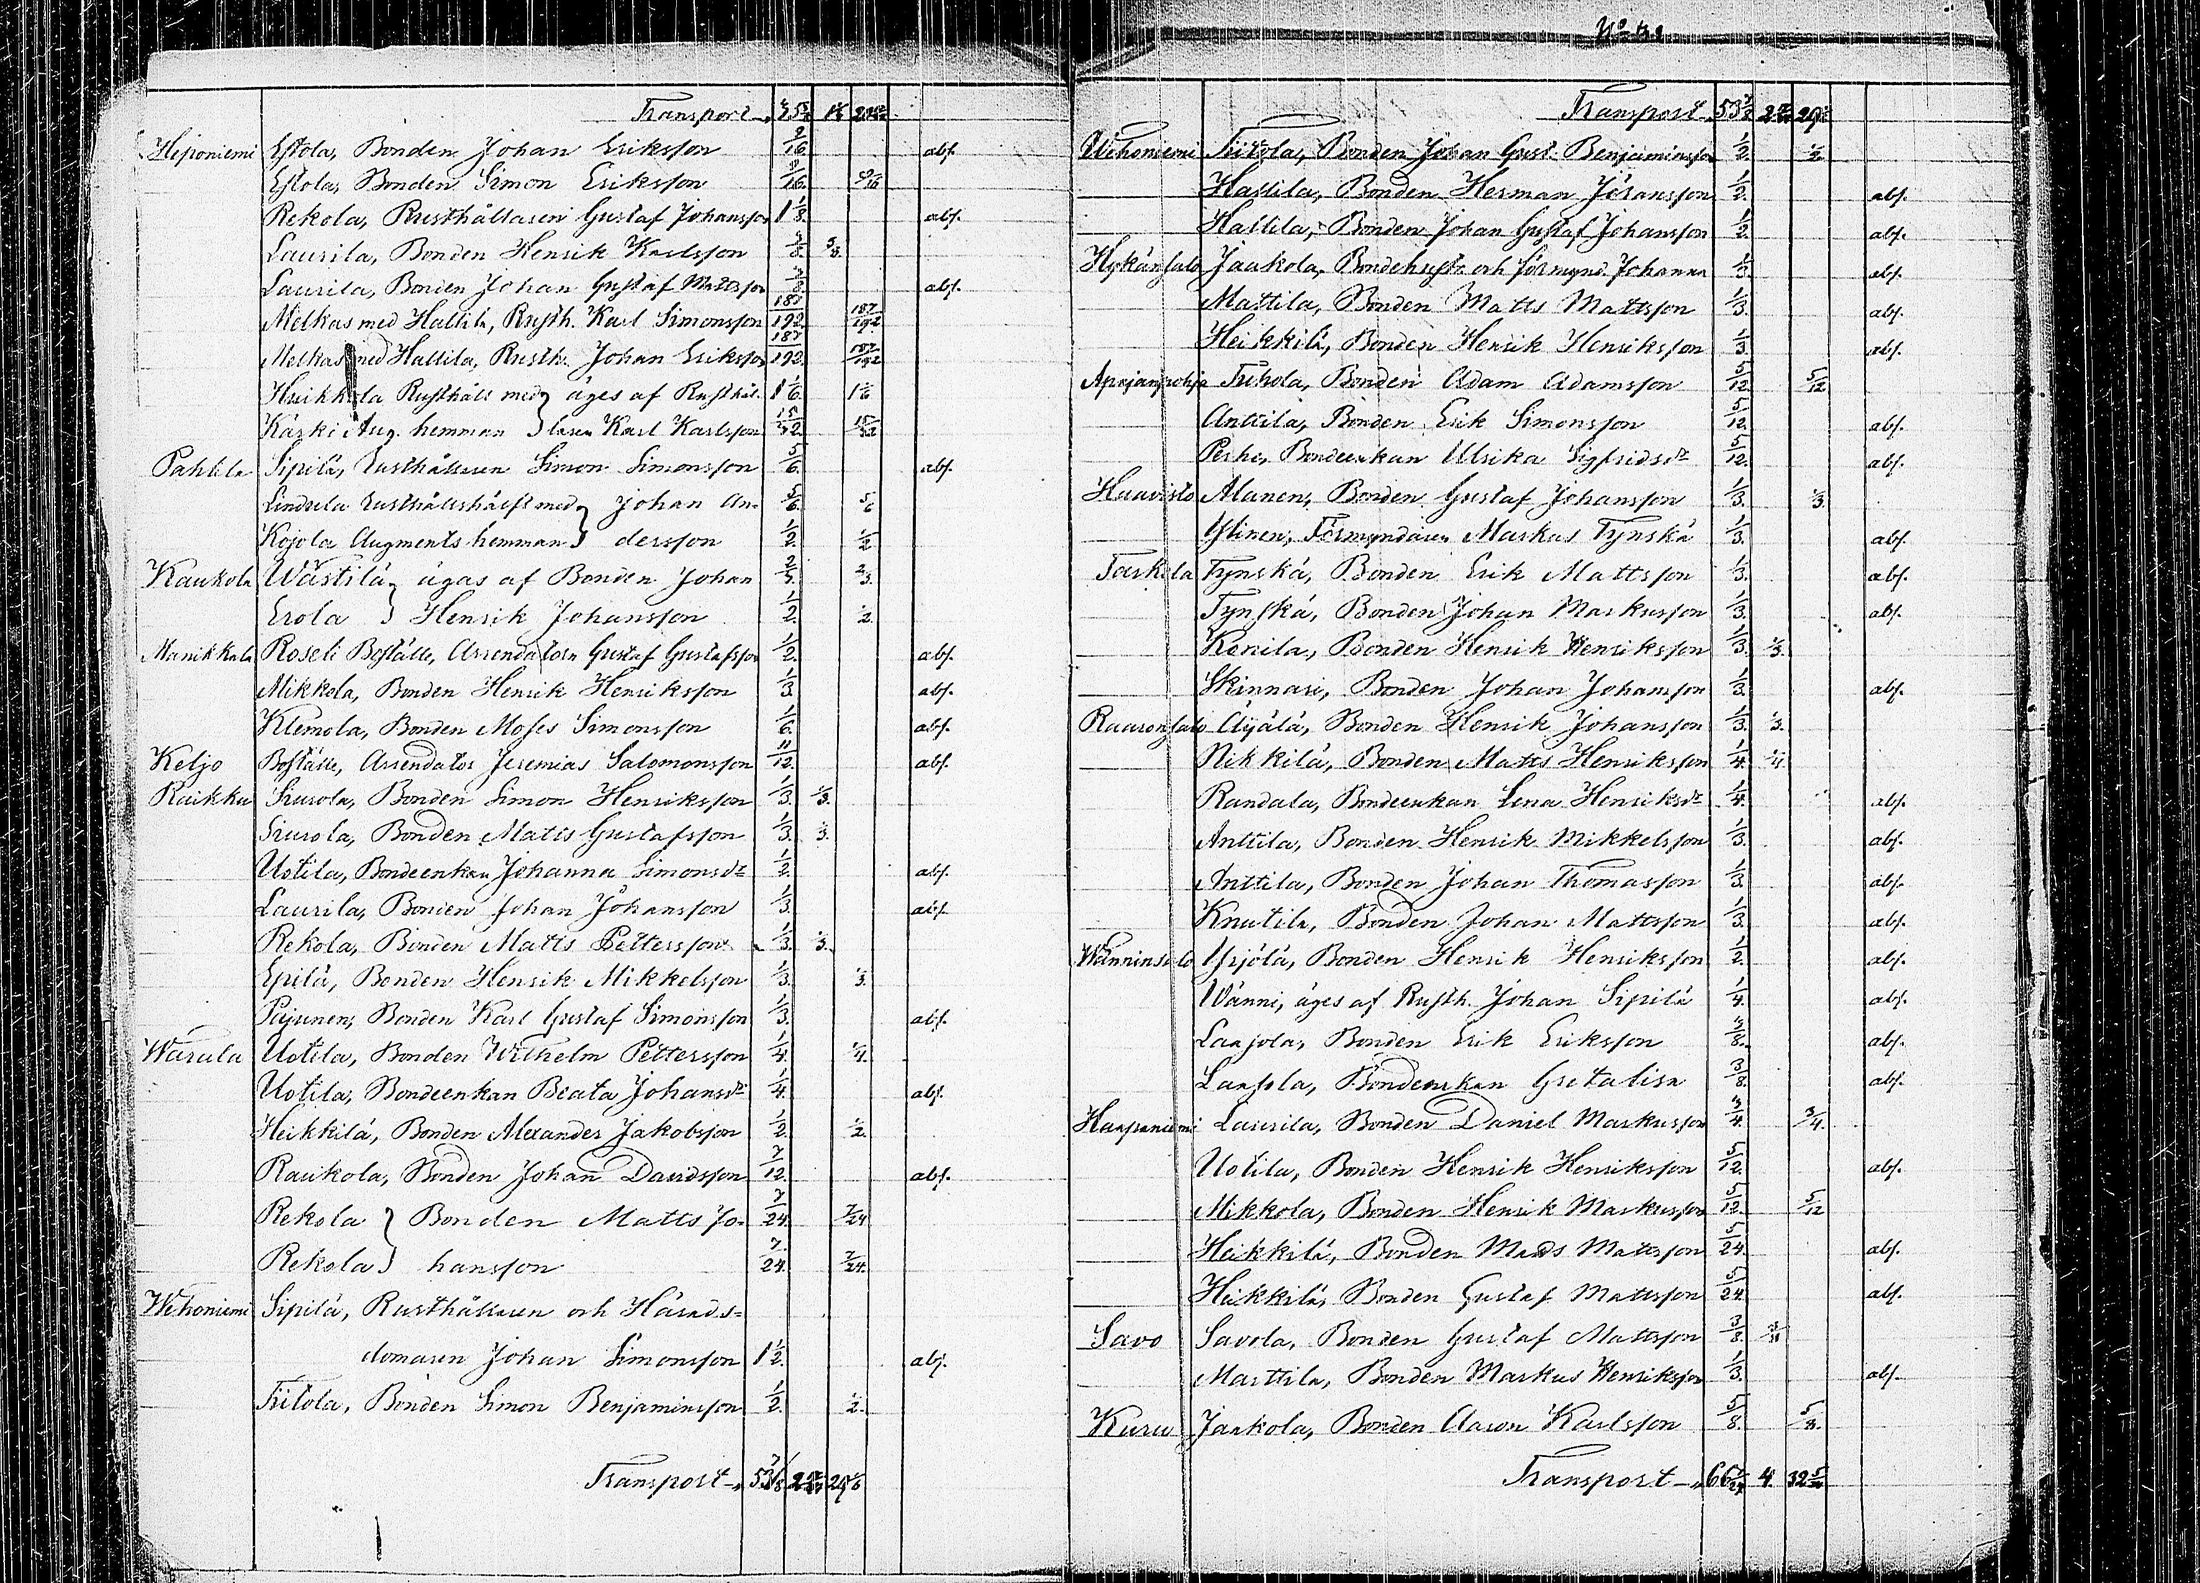 Transport
Heponiemi Estola, Bonden Johan Eriksson 9/16 abs.
Estola, Bonden Simon Eriksson 9/16 9/16
Rekola, Rusthållaren Gustaf Johansson 1 1/8 abs.
Laurila, Bonden Henrik Karlsson 3/8 3/8
Laurila, Bonden Johan Gustaf Mattsson 3/8 abs.
Melkas med Hallila, Rusth. Karl Simonsson 187/192 187/192
Melkas med Hallila, Rusth. Johan Eriksson 187/192 187/192
Heikkola Rusthåll med } äges af Rusthål- 1 1/6 1 1/6
Kärki Aug. hemman } laren Karl Karlsson 15/32 15/32
Pahkla Sipilä, Rusthållaren Simon Simonsson 5/6 abs.
Lindula Rusthållshälft med } Johan An- 5/6 5/6
Kojola Augments hemman } dersson 1/2 1/2
Kaukola Wästilä } ägas af Bonden Johan 2/3 2/3
Erola } Henrik Johansson 1/2 1/2
Manikkala Roseli Boställe, Arrendatorn Gustaf Gustafsson 1/2 abs.
Mikkola, Bonden Henrik Henriksson 1/3 abs.
Klemola, Bonden Moses Simonsson 1/6 abs.
Keljo Boställe, Arrendator Jeremias Salomonsson 11/12 abs.
Raikku Siurola, Bonden Simon Henriksson 1/3 1/3
Siurola, Bonden Matts Gustafsson 1/3 1/3
Uotila, Bondeenkan Johanna Simonsdr 1/2 abs.
Laurila, Bonden Johan Johansson 1/3 abs.
Rekola, Bonden Matts Pettersson 1/3 1/3
Epilä, Bonden Henrik Mikkelsson 1/3 1/3
Pajunen, Bonden Karl Gustaf Simonsson 1/3 abs.
Warula Uotila, Bonden Wilhelm Pettersson 1/4 1/4
Uotila, Bondeenkan Beata Johansdr 1/4 abs.
Heikkilä, Bonden Alexander Jakobsson 1/2 1/2
Raukola, Bonden Johan Davidsson 7/12 abs.
Rekola } Bonden Matts Jo- 7/24 7/24
Rekola } hansson 7/24 7/24
Wehoniemi Sipilä, Rusthållaren och Härads-
domaren Johan Simonsson 1 1/2 abs.
Tiitola, Bonden Simon Benjaminsson 1/2 1/2
Transport
Transport
Wehoniemi Tiitola, Bonden Johan Gust. Benjaminsson 1/2 1/2
Hallila, Bonden Herman Göransson 1/2 abs.
Hallila, Bonden Johan Gustaf Johansson 1/2 abs.
Hykänsalo Jaakola, Bondehustr. och förmynd. Johanna 1/3 abs.
Mattila, Bonden Matts Mattsson 1/3 abs.
Heikkilä, Bonden Henrik Henriksson 1/3 abs.
Apajanpohja Tuhola, Bonden Adam Adamsson 5/12 5/12
Anttila, Bonden Erik Simonsson 5/12 abs.
Perho, Bondeenkan Ulrika Sigfridsdr 5/12 abs.
Haavisto Alanen, Bonden Gustaf Johansson 1/3 1/3
Ylinen, Förmyndaren Markus Tynskä 1/3 abs.
Taskila Tynskä, Bonden Erik Mattsson 1/3 abs.
Tynskä, Bonden Johan Markusson 1/3 abs.
Konila, Bonden Henrik Henriksson 1/3 1/3
Skinnari, Bonden Johan Johansson 1/3 abs.
Rauronsalo Äijälä, Bonden Henrik Johansson 1/3 1/3
Nikkilä, Bonden Matts Henriksson 1/4 1/4
Randala, Bondeenkan Lena Henriksdr 1/4 abs.
Anttila, Bonden Henrik Mikkelsson 1/3 abs.
Anttila, Bonden Johan Thomasson 1/3 abs.
Knutila, Bonden Johan Mattsson 1/3 abs.
Wänninsalo Yrjölä, Bonden Henrik Henriksson 1/2 abs.
Wänni, äges af Rusth. Johan Sipilä 1/4 abs.
Laajola, Bonden Erik Eriksson 3/8 abs.
Laajola, Bondeenkan Gretalisa 3/8 abs.
Haapaniemi Laurila, Bonden Daniel Markusson 3/4 3/4
Uotila, Bonden Henrik Henriksson 5/12 abs.
Mikkola, Bonden Henrik Markusson 5/12 5/12
Heikkilä, Bonden Mads Mattsson 5/24 abs.
Heikkilä, Bonden Gustaf Mattsson 5/24 abs.
Savo Savola, Bonden Gustaf Mattsson 3/8 3/8
Marttila, Bonden Markus Henriksson 1/3 abs.
Kuru Jaakola, Bonden Aaron Karlsson 5/8 5/8
Transport 4